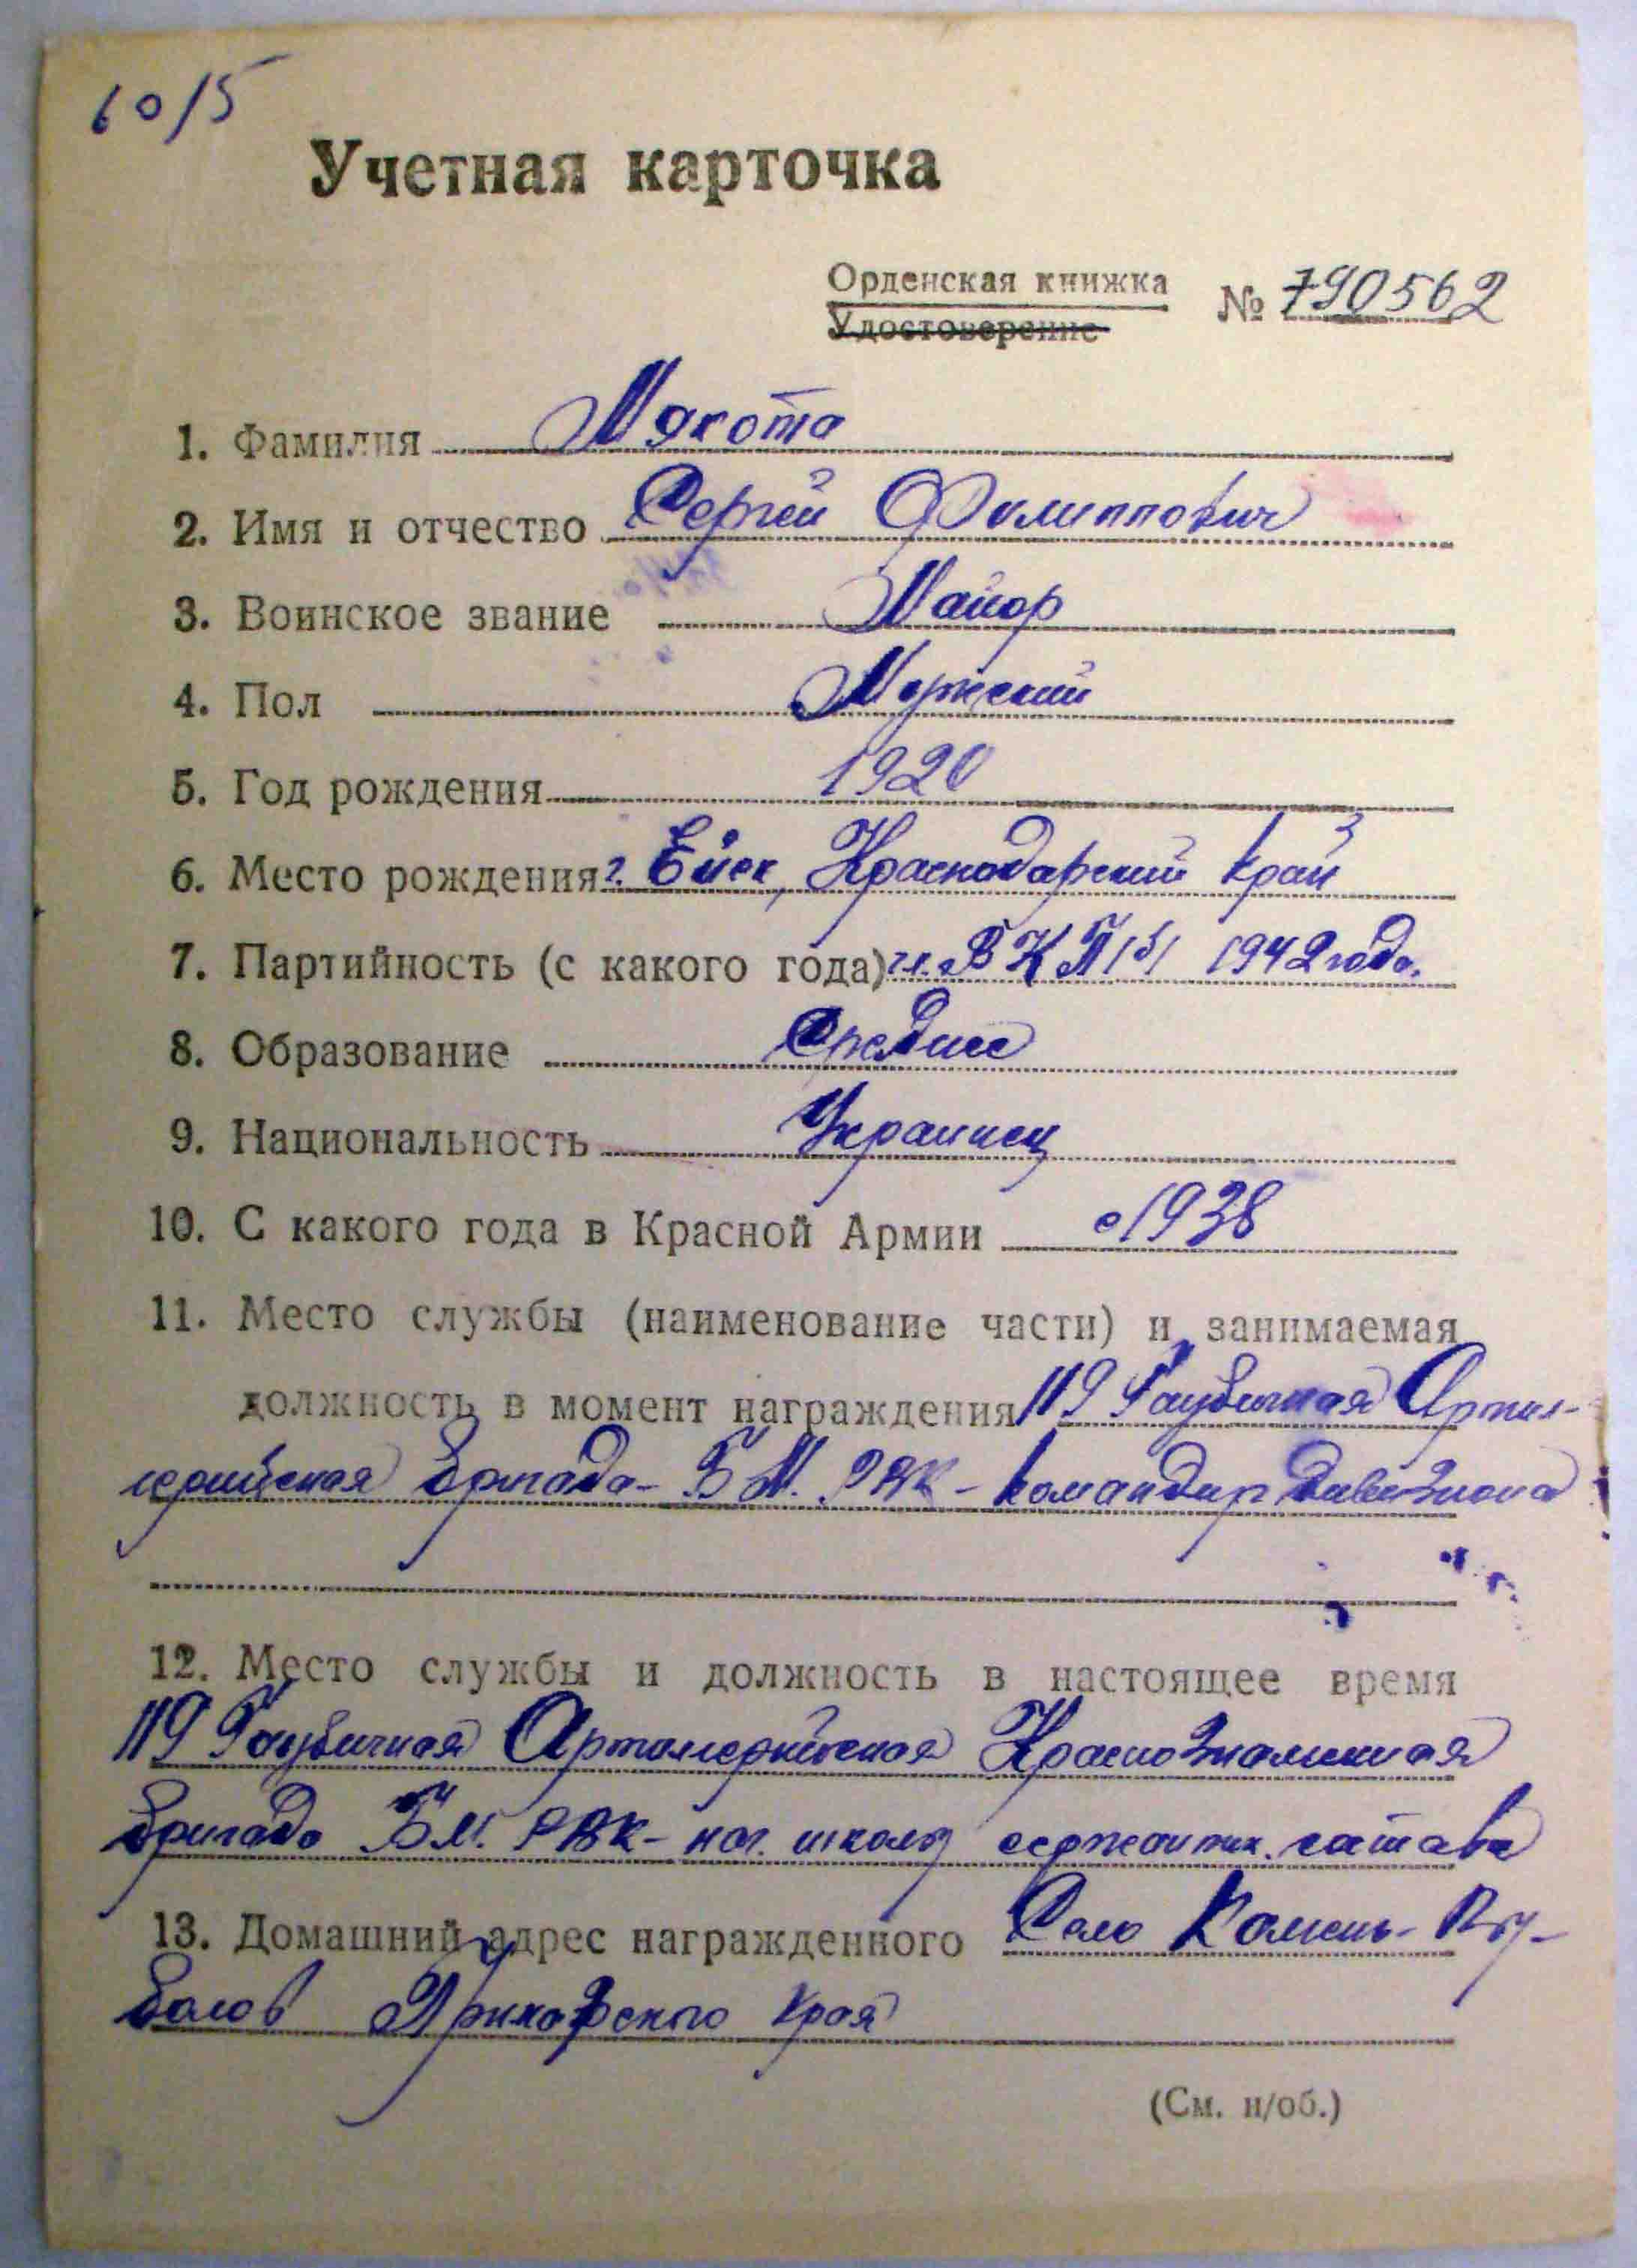 60/5
Учетная карточка
Орденская книжка
Удостоверение
№ 790562
1. Фамилия Мякота
2. Имя и отчество Сергей Филиппович
3. Воинское звание Майор
4. Пол Мужский
5. Год рождения 1920
6. Место рождения г. Ейск, Краснодарский край
7. Партийность (с какого года) чл. ВКП/б/ 1942 года.
8. Образование Среднее
9. Национальность Украинец
10. С какого года в Красной Армии с 1938
11. Место службы (наименование части) и занимаемая
должность в момент награждения 119 Гаубичная Артил-
лерийская бригада - Б.М. РВК - командир дивизиона
12. Место службы и должность в настоящее время
119 Гаубичная Артиллерийская Краснознаменная
бригада Б.М. РВК - нач. школы сержантск. состава
13. Домашний адрес награжденного Село Камень-Ры-
болов Приморского края
(См. н/об.)